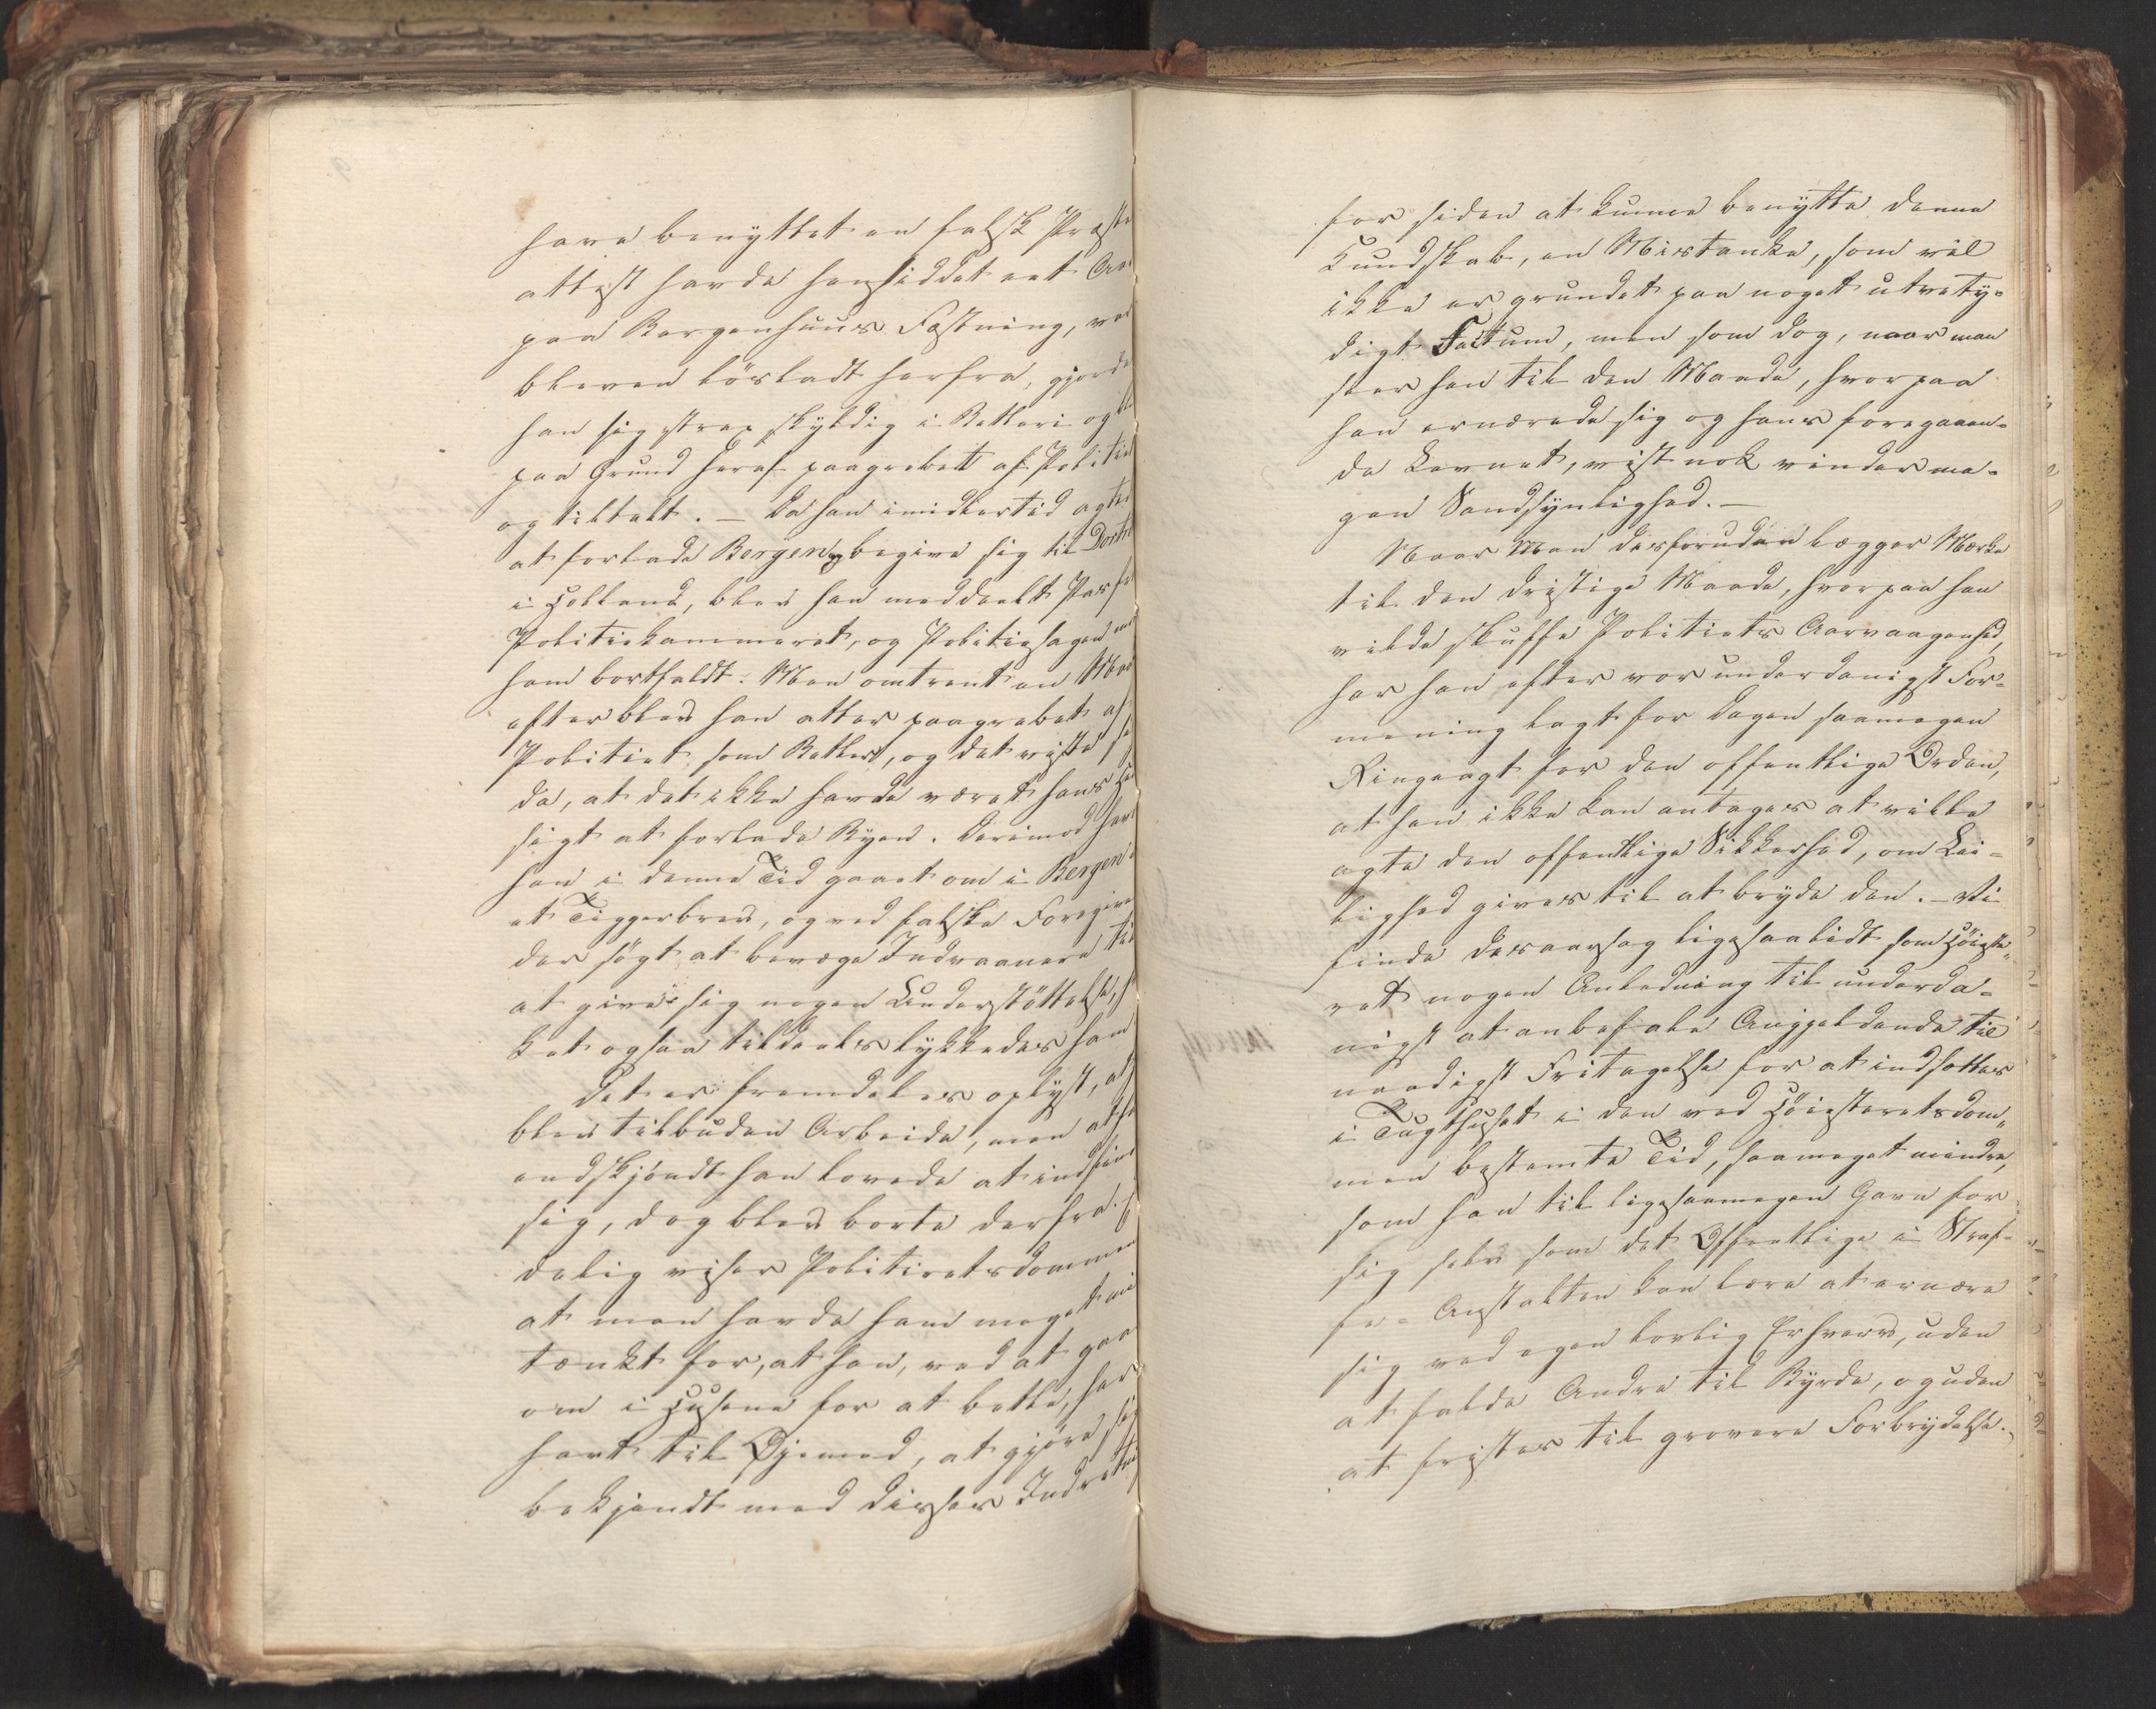 have benyttet en falsk Præste
attest havde hensiddet eet Aar
paa Bergenhuus Fæstning, var
bleven løsladt herfra, gjorde
han sig strax skyldig i Betleri og bl
paa Grund heraf paagrebet af Politiet
og tiltalt. — Da han imidlertid agted
at forlade Bergen og begive sig til Dortr
i Holland, blev han meddeelt Pas fr
Politiekammeret, og Politiesagen mo
ham bortfaldt. Men omtrent en Maa
efter blev han atter paagrebet af
Politiet som Betler, og det viste si
da, at det ikke havde været hans He
sigt at forlade Byen. Derimod hav
han i denne Tid gaaet om i Bergen m
et Tiggerbrev, og ved falske Foregiven
der søgt at bevæge Indvaanere til
at give sig nogen Understøttelse, h
ket ogsaa tildeels lykkedes ham
Det er fremdeles oplyst, at h
blev tilbuden Arbeide, men at ha
endskjøndt han lovede at indfin
sig, dog blev borte derfra. E
delig viser Politieretsdommen
at man havde ham meget mis
tænkt for, at han, ved at gaa
om i Husene for at betle, hav
havt til Øjemed, at gjøre sig
bekjendt med disses Indretni
for siden at kunne benytte denne
Kundskab, en Mistanke, som vel
ikke er grundet paa noget utvety-
digt Factum, men som dog, naar man
seer hen til den Maade, hvorpaa
han ernærede sig og hans foregaaen-
de Levnet, vist nok vinder me-
gen Sandsynlighed. —
Naar Man desforuden lægger Mærke
til den dristige Maade, hvorpaa han
vilde skuffe Politiets Aarvaagenhed,
har han efter vor underdanigst For-
mening lagt for Dagen saamegen
Ringeagt for den offentlige Orden,
at han ikke kan antages at ville
agte den offentlige Sikkerhed, om Lei-
lighed gives til at bryde den. — Vi
finde desaarsag ligesaalidt som Høieste-
ret nogen Anledning til underda-
nigst at anbefale Angjeldende til
naadigst Fritagelse for at indsættes
i Tugthuset i den ved Høiesteretsdom-
men bestemte Tid, saameget mindre,
som han til ligesaamegen Gavn for
sig selv som det Offentlige i Straf-
fe-Anstalten kan lære at ernære
sig ved egen lovlig Erhverv, uden
at falde Andre til Byrde, og uden
at fristes til grovere Forbrydelse.